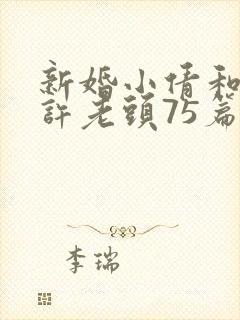 新婚小倩和
許老頭75篇
李瑞